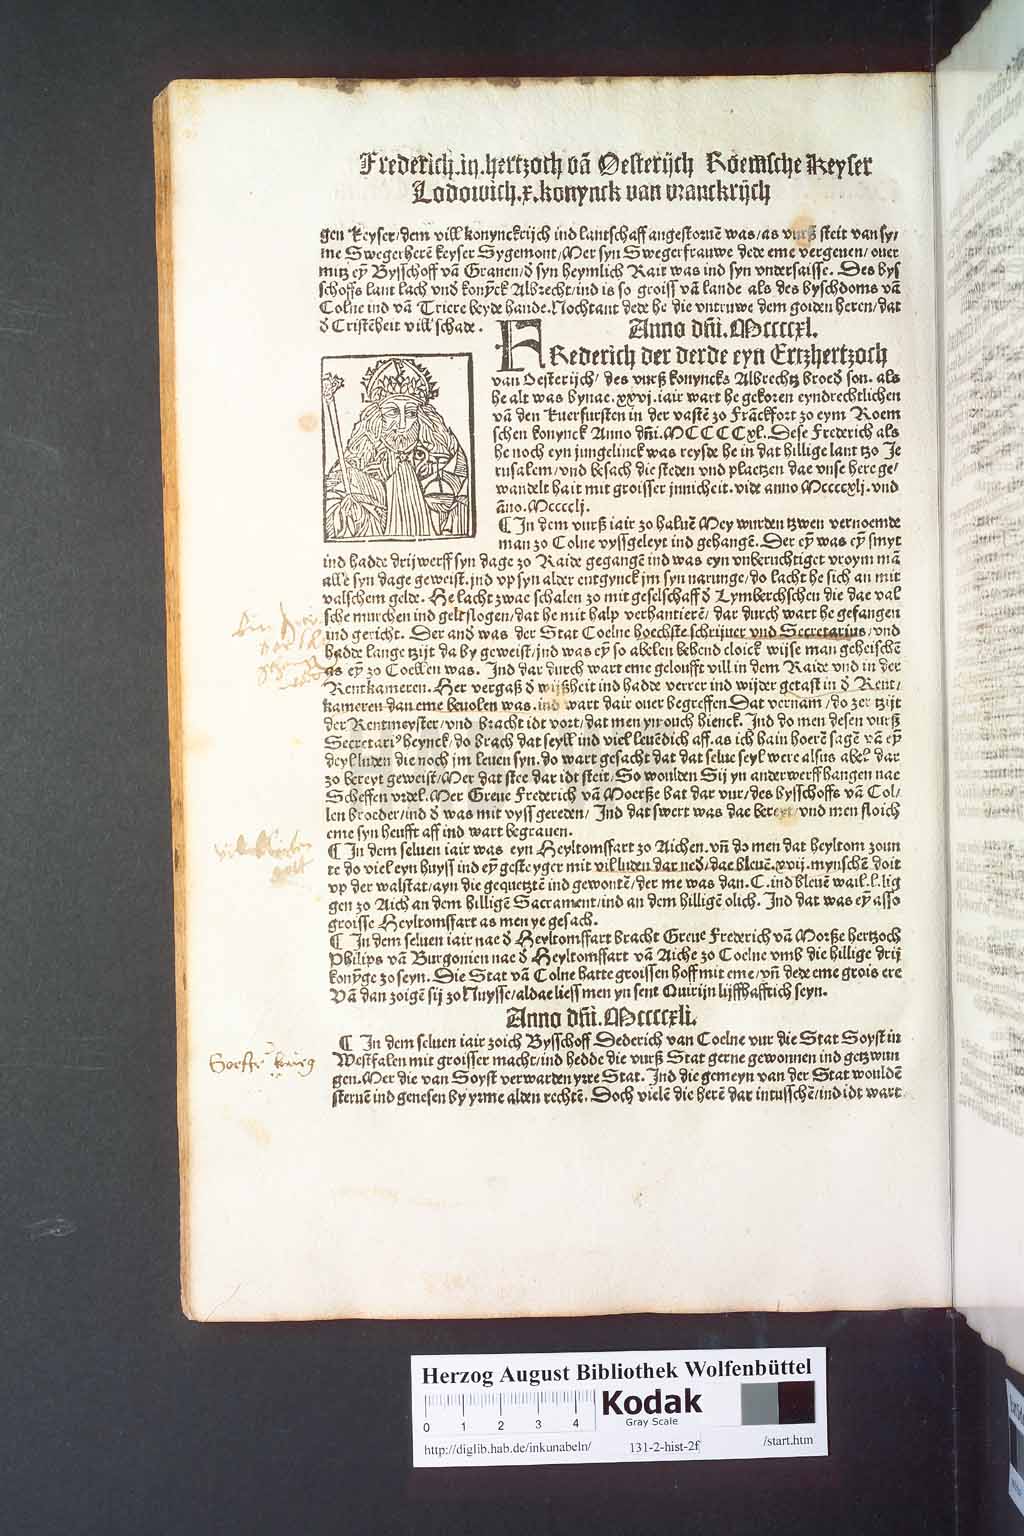 Frederich.iij.hertzoch vã Oesterijch Roemsche Keyser
Lodowich.x.konynck van vranckrijch
gen Keyser/dem vill konynckrijch ind lantschaff angestornẽ was/as vurß steit van sy/
me Swegerherẽ keyser Sygemont/Mer syn Swegerfrauwe dede eme vergeuen/ouer
mitz eỹ Bysschoff vã Granen/đ syn heymlich Rait was ind syn vndersaisse. Des bys
schoffs lant lach vnđ konỹck Albrecht/ind is so groiss vã lande als des byschdoms vã
Colne ind vã Triere beyde hande. Nochtant dede he die vntruwe dem goiden heren/dat
đ Cristẽheit vill schade.
Anno dñi.Mccccxl.
FRederich der derde eyn Ertzhertzoch
van Oesterijch/ des vurß konyncks Albrechtz broed son. als
he alt was bynae.xxvj.iair wart he gekoren eyndrechtlichen
vã den Kuerfursten in der vastẽ zo Frãckfort zo eym Roem
schen konynck Anno dñi.MCCCCxl. Dese Frederich als
he noch eyn jungelinck was reysde he in dat hillige lant tzo Je
rusalem/vnd besach die steden vnd plaetzen dae vnse here ge/
wandelt hait mit groisser jnnicheit. vide anno Mccccxlj. vnd
ãno. Mcccclj.
¶ In dem vurß iair zo haluẽ Mey wurden tzwen vernoemde
man zo Colne vyssgeleyt ind gehangẽ. Der eỹ was eỹ smyt
ind hadde drijwerff syn dage zo Raide gegangẽ ind was eyn vnberuchtiget vroym mã
alle syn dage geweist. jnd vp syn alder entgynck jm syn narunge/do lacht he sich an mit
valschem gelde. He lacht zwae schalen zo mit geselschaff đ Lymberchschen die dae val
sche munchen ind gelt slogen/dat he mit halp verhantierẽ/dar durch wart he gefangen
ind gericht. Der anđ was der Stat Coelne hoechste schrijuer vnd Secretarius/vnd
hadde lange tzijt da by geweist/jnd was eỹ so abelen behend cloick wijse man geheischẽ
as eỹ zo Coellen was. Ind dar durch wart eme geloufft vill in dem Raide vnd in der
Rentkameren. Her vergaß đ wijßheit ind hadde verrer ind wijder getast in đ Rent/
kameren dan eme beuolen was. ind wart dair ouer begreffen Dat vernam/do zer tzijt
der Rentmeyster/vnd bracht idt vort/dat men yn ouch hienck. Ind do men desen vurß
Secretari⁹ heynck/do brach dat seyll ind viel leuẽdich aff. as ich hain hoerẽ sagẽ vã eỹ
deyl luden die noch jm leuen syn. do wart gesacht dat dat selue seyl were alsus abel dar
zo bereyt geweist/Mer dat stee dar idt steit/So woulden Sij yn anderwerff hangen nae
Scheffen vrdel. Mer Greue Frederich vã Moerße bat dar vur/des bysschoffs vã Col/
len broeder/ind đ was mit vyss gereden/ Ind dat swert was dae bereyt/vnd men sloich
eme syn heufft aff ind wart begrauen.
¶ In dem seluen iair was eyn Heyltomffart zo Aichen. vñ do men dat heyltom zoun
te do viel eyn huyss ind eỹ gesteyger mit vil luden dar neđ/dae bleuẽ.xvij.mynschẽ doit
vp der walstat/ayn die gequetztẽ ind gewontẽ/der me was dan.C.ind bleuẽ wail.l.lig
gen zo Aich an dem billigẽ Sacrament/ind an dem hilligẽ olich. Ind dat was eỹ alßo
groisse Heyltomffart as men ye gesach.
¶ In dem seluen iair nae đ Heyltomffart bracht Greue Frederich vã Morße hertzoch
Philips vã Burgonien nae đ Heyltomffart vã Aiche zo Coelne vmb die hillige drij
konỹge zo seyn. Die Stat vã Colne hatte groissen hoff mit eme/vñ dede eme grois ere
Vã dan zoigẽ sij zo Nuysse/aldae liess men yn sent Quirijn lijffhafftich seyn.
Anno dñi.Mccccxli.
¶ In dem seluen iair zoich Bysschoff Dederich van Coelne vur die Stat Soyst in
Westfalen mit groisser macht/ind hedde die vurß Stat gerne gewonnen ind getzwun
gen. Mer die van Soyst verwarden yrre Stat. Ind die gemeyn van der Stat wouldẽ
steruẽ ind genesen by yrme alden rechtẽ. Doch vielẽ die herẽ dar intusschẽ/ind idt wart
Herzog August Bibliothek Wolfenbüttel
Kodak
Gray Scale
0 1 2 3 4
http://diglib.hab.de/inkunabeln/ 131-2-hist-2f /start.htm